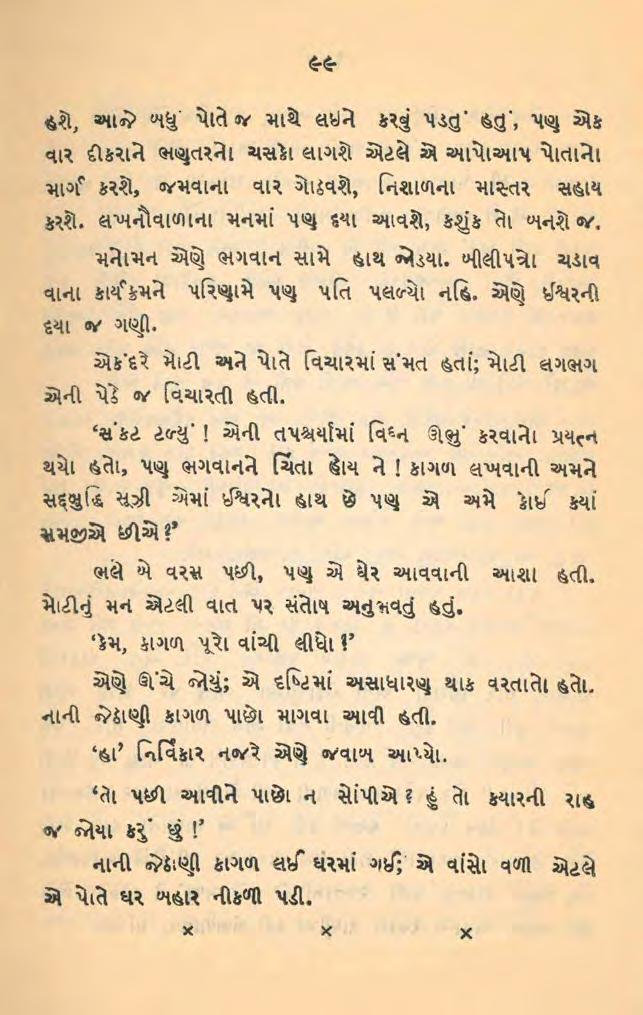 ૯૯
હશે, આજે બધું પોતે જ માથે લઇને કરવું પડતું હતું, પણ એક
વાર દીકરાને ભણતરનો ચસકો લાગશે એટલે એ આપોઆપ પોતાનો
માર્ગ કરશે, જમવાના વાર ગોઠવશે, નિશાળના માસ્તર સહાય
કરશે. લખનૌવાળાના મનમાં પણ દયા આવશે, કશુંક તો બનશે જ.
મનોમન એણે ભગવાન સામે હાથ જોડયા. બીલીપત્રો ચડાવ
વાના કાર્યક્રમને પરિણામે પણ પતિ પલળ્યો નહિ. એણે ઈશ્વરની
દયા જ ગણી.
એકંદરે મોટી અને પોતે વિચારમાં સંમત હતાં; મોટી લગભગ
એની પેઠે જ વિચારતી હતી.
‘સંકટ ટળ્યું ! એની તપશ્ચર્યામાં વિઘ્ન ઊભું કરવાનો પ્રયત્ન
થયો હતો, પણ ભગવાનને ચિંતા હોય ને ! કાગળ લખવાની અમને
સદ્દબુદ્ધિ સૂઝી એમાં ઈશ્વરનો હાથ છે પણ એ અમે કોઈ કયાં
સમજીએ છીએ ?’
ભલે બે વરસ પછી, પણ એ ઘેર આવવાની આશા હતી.
મોટીનું મન એટલી વાત પર સંતોષ અનુભવતું હતું.
‘કેમ, કાગળ પૂરો વાંચી લીધો ?’
એણે ઊંચે જોયું; એ દષ્ટિમાં અસાધારણ થાક વરતાતો હતો.
નાની જેઠાણી કાગળ પાછો માગવા આવી હતી.
‘હા’ નિર્વિકાર નજરે એણે જવાબ આપ્યો.
‘તો પછી આવીને પાછો ન સોંપીએ ? હું તો કયારની રાહ
જ જોયા કરું છું !’
નાની જેઠાણી કાગળ લઈ ઘરમાં ગઈ; એ વાંસો વળી એટલે
એ પોતે ઘર બહાર નીકળી પડી.
× × ×